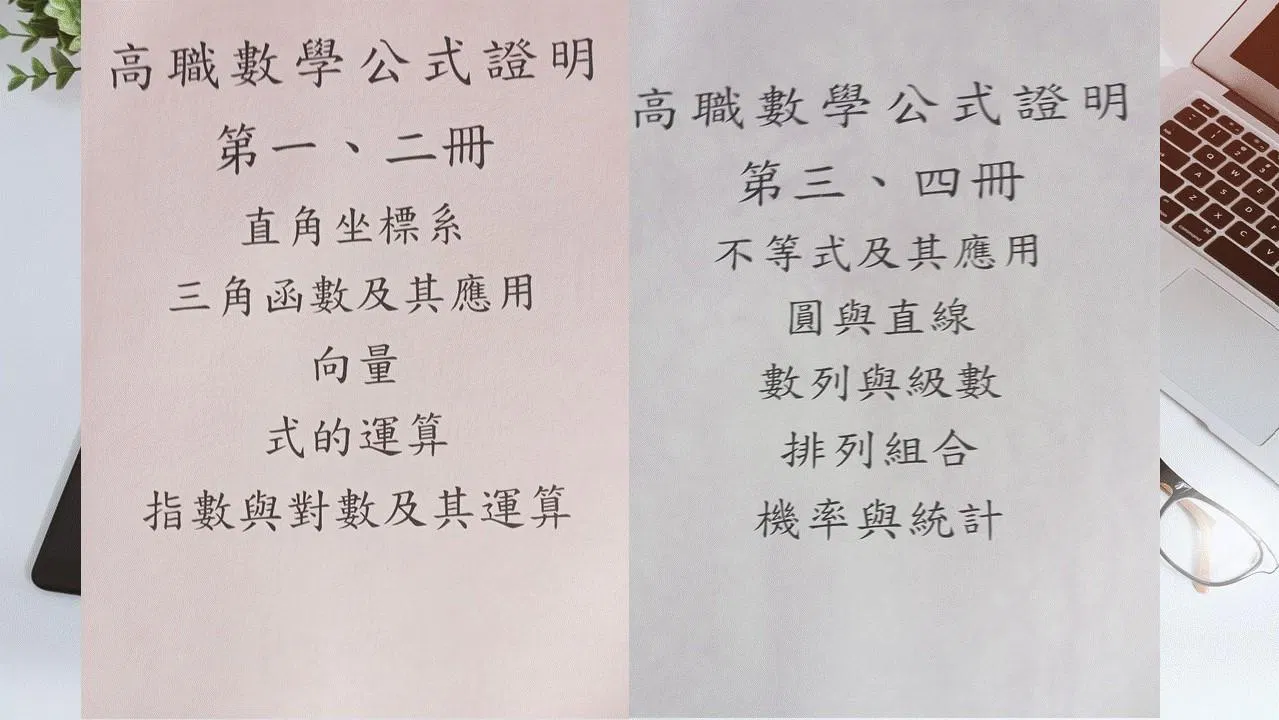 高職數學公式證明
第一、二冊
直角坐標系
三角函數及其應用
向量
式的運算
指數與對數及其運算
高職數學公式證明
第三、四冊
不等式及其應用
圓與直線
數列與級數
排列組合
機率與統計